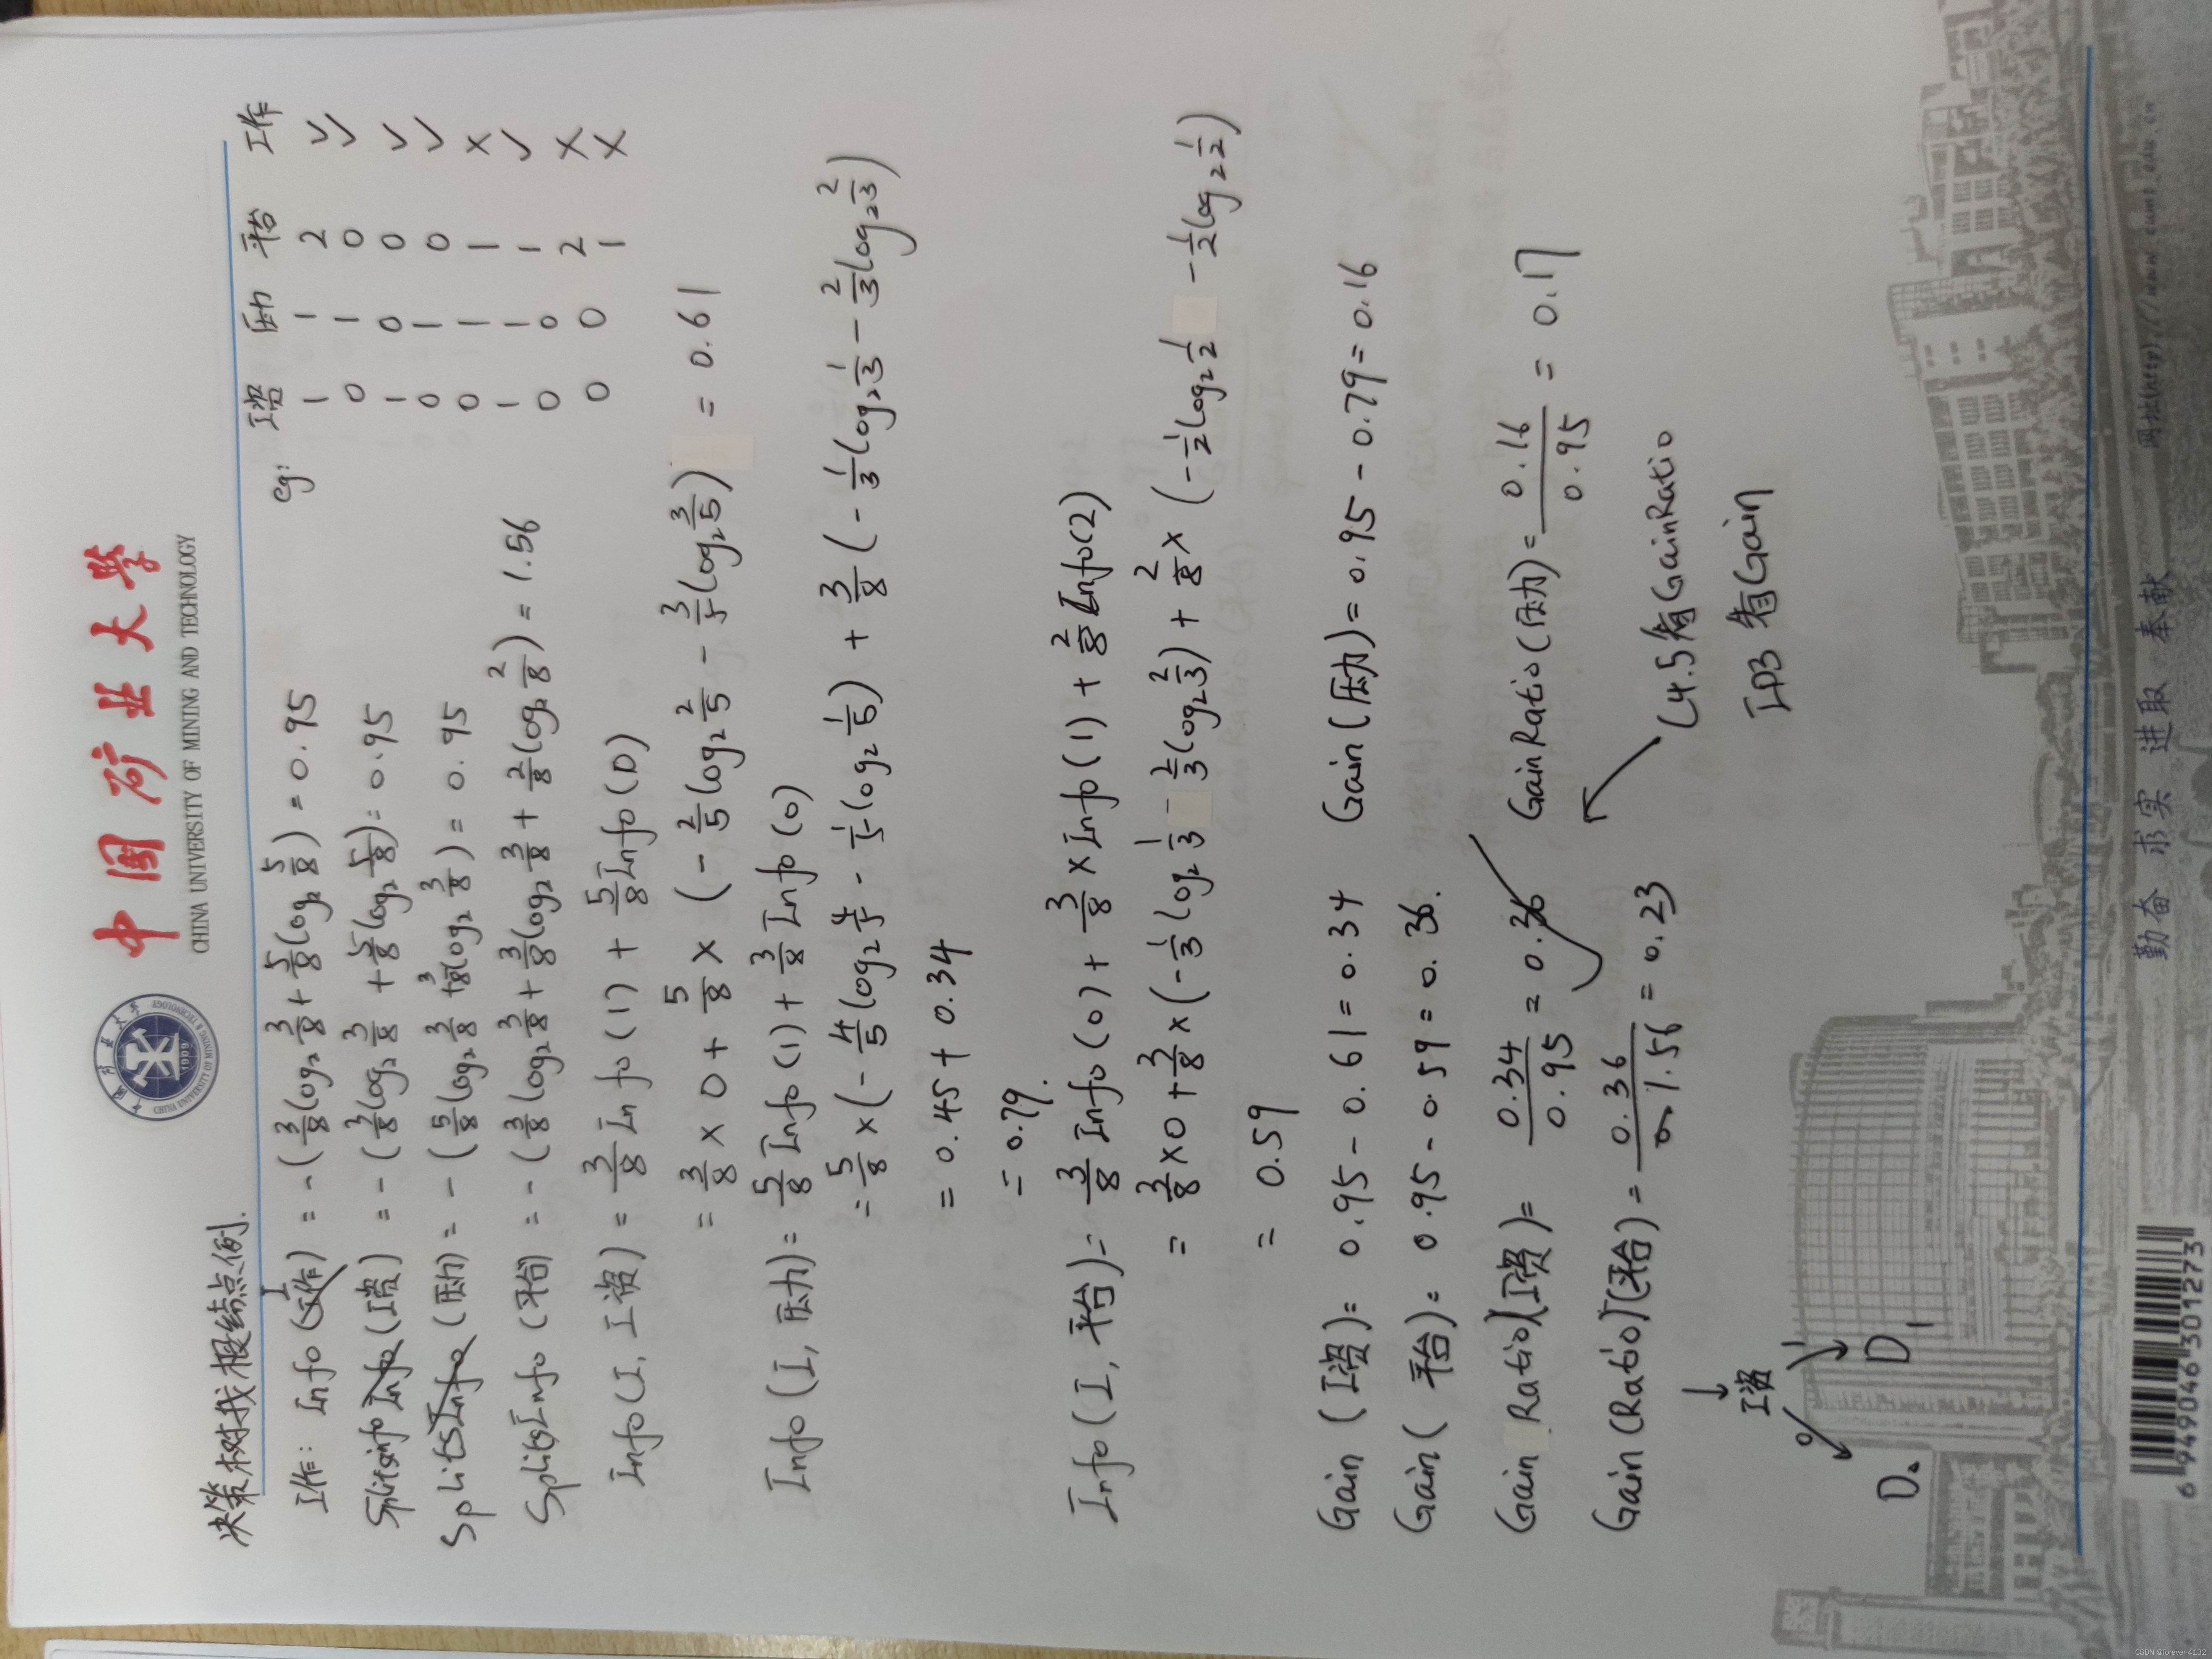 中国矿业大学
CHINA UNIVERSITY OF MINING AND TECHNOLOGY
决策树找根结点例.
eg: 工资 压力 平台 工作
1 1 2 √
0 1 0 √
1 0 0 √
0 1 0 √
0 1 1 ×
1 1 1 √
0 0 2 ×
0 0 1 ×
工作: Info(I) = -(3/8 log₂ 3/8 + 5/8 log₂ 5/8) = 0.95
SplitsInfo(工资) = -(3/8 log₂ 3/8 + 5/8 log₂ 5/8) = 0.95
SplitsInfo(压力) = -(5/8 log₂ 3/8 + 3/8 log₂ 3/8) = 0.95
SplitsInfo(平台) = -(3/8 log₂ 3/8 + 3/8 log₂ 3/8 + 2/8 log₂ 2/8) = 1.56
Info(I, 工资) = 3/8 Info(1) + 5/8 Info(0)
= 3/8 × 0 + 5/8 × (-2/5 log₂ 2/5 - 3/5 log₂ 3/5) = 0.61
Info(I, 压力) = 5/8 Info(1) + 3/8 Info(0)
= 5/8 × (-4/5 log₂ 4/5 - 1/5 log₂ 1/5) + 3/8 (-1/3 log₂ 1/3 - 2/3 log₂ 2/3)
= 0.45 + 0.34
= 0.79.
Info(I, 平台) = 3/8 Info(0) + 3/8 × Info(1) + 2/8 Info(2)
= 3/8 × 0 + 3/8 × (-1/3 log₂ 1/3 - 2/3 log₂ 2/3) + 2/8 × (-1/2 log₂ 1/2 - 1/2 log₂ 1/2)
= 0.59
Gain(工资) = 0.95 - 0.61 = 0.34 Gain(压力) = 0.95 - 0.79 = 0.16
Gain(平台) = 0.95 - 0.59 = 0.36.
Gain Ratio(工资) = 0.34/0.95 = 0.36 √ GainRatio(压力) = 0.16/0.95 = 0.17
Gain(Ratio)(平台) = 0.36/1.56 = 0.23
C4.5看GainRatio
ID3看Gain
工资
0 1
D₀ D₁
勤奋 求实 进取 奉献
网址(http)://www.cumt.edu.cn
6 949046 301273
CSDN @forever 4132